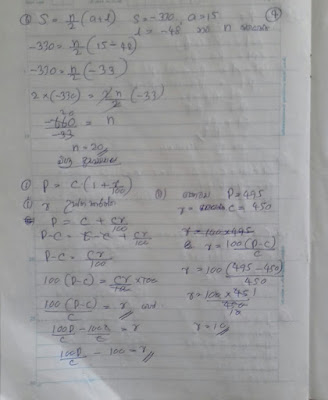 ④
① S = n/2 (a+l) S = -330, a = 15
l = -48 n
-330 = n/2 (15 - 48)
-330 = n/2 (-33)
2 × (-330) = 2n/2 (-33)
-660/-33 = n
20
n = 20
① P = C (1 + r/100)
① r
P = C + Cr/100
P-C = C - C + Cr/100
P-C = Cr/100
100 (P-C) = Cr/100 × 100
100 (P-C)/C = r
100P/C - 100C/C = r
100P/C - 100 = r
P = 495
C = 450
r = 100×495
r = 100 (P-C)/C
r = 100 (495 - 450)/450
r = 100 × 45/450
r = 10